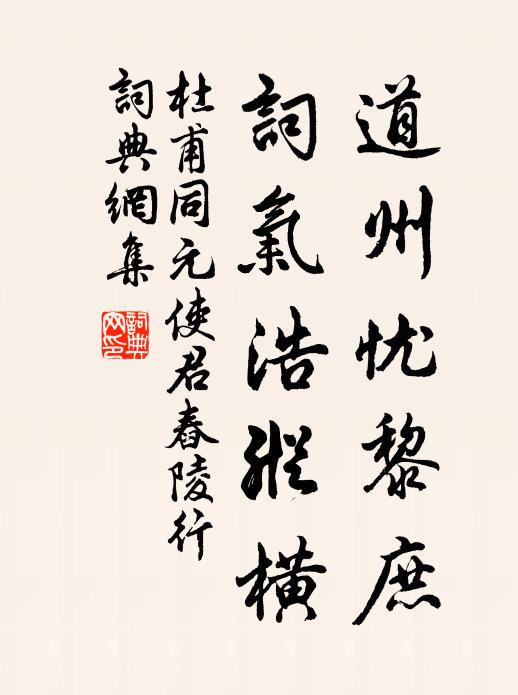 道州忧黎庶
詞氣浩縱橫
杜甫同元使君舂陵行
詞典網集
詞典网印